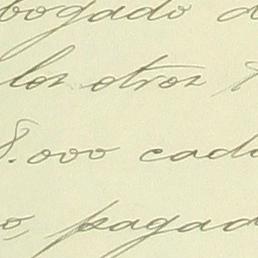 bogado d
los otros 8
8.000 cada
o, pagad